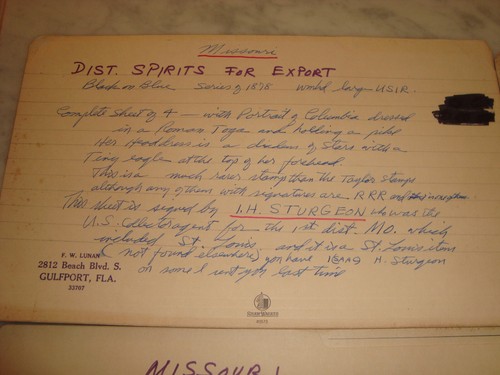 Missouri
DIST. SPIRITS FOR EXPORT
Black on Blue series of 1878 wmkd large USIR.
Complete Sheet of 4 — with Portrait of Columbia dressed
in a Roman Toga and holding a
Her Headdress is a diadem of Stars with a
Tiny eagle at the top of her forehead.
This is a much rarer stamp than the Taylor Stamps
although any of them with signatures are RRR and
This sheet is signed by I.H. STURGEON who was the
U.S. Collector agent for the 1st dist. MO. which
included St. Louis, and it is a St. Louis item
(not found elsewhere) you have ISAAC H. Sturgeon
on some I sent you last time
F. W. LUNAN
2812 Beach Blvd. S.
GULFPORT, FLA.
33707
MISSOURI